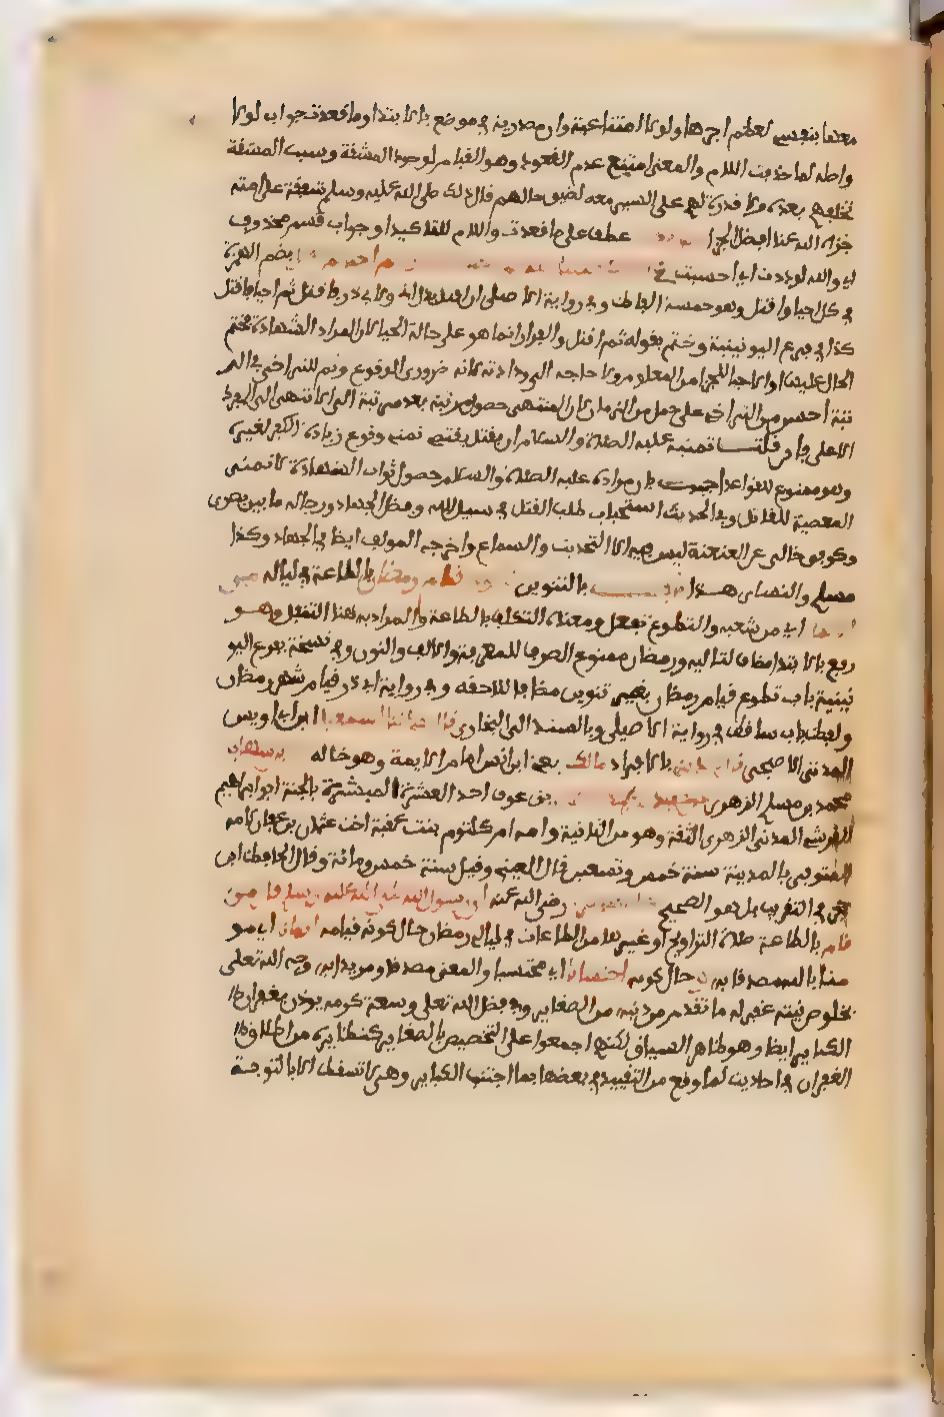 معها بنفسي لعظم اجرها ولولا امتناعية وان مصدرية في موضع بالابتدا وما قعدت جواب لولا
واصله لما حذفت اللام والمعنى امتنع عدم القعود وهو القيام لوجود المشقة وسبب المشقة
تخلفهم بعده ولا قدرة لهم على السير معه لضيق حالهم قال ذلك صلى الله عليه وسلم شفقة على امته
جزاه الله عنا افضل الجزا عطف على ما قعدت واللام للتاكيد او جواب قسم محذوف
اي والله لوددت اي احببت بضم الهمزة
في كل احيا واقتل وهو خمسة الفاظ وفي رواية الاصيلي ان اقتل بدل اني ولابي ذر فاقتل ثم احيا فاقتل
كذا في فرع اليونينية وختم بقوله ثم اقتل والقرار انما هو على حالة الحياة لان المراد الشهادة فختم
الحال عليها او الاحيا للجزا من المعلوم ولا حاجة الى ودادته لانه ضروري الوقوع وثم للتراخي في الر
تبة احسن من التراخي على حمل من الزمان لان المتمنى حصول مرتبة بعد مرتبة الى ان انتهى الى الفردوس
الاعلى فان قلت تمنيه عليه الصلاة والسلام ان يقتل يقتضي تمني وقوع زيادة الكفر لغيره
وهو ممنوع للقواعد اجيب بان مراده عليه الصلاة والسلام حصول ثواب الشهادة لا تمني
المعصية للقاتل وفي الحديث استحباب طلب القتل في سبيل الله وفضل الجهاد ورجاله ما بين بصري
وكوفي خالي عن العنعنة ليس فيه الا التحديث والسماع واخرجه المولف ايضا في الجهاد وكذا
مسلم والنسائي هذا باب بالتنوين قيام رمضان بالطاعة في لياله من
اي من شعبه والتطوع تفعل ومعناه التكلف بالطاعة والمراد به هنا التنفل وهو
رفع بالابتدا مضاف لتاليه ورمضان ممنوع الصرف للعلمية والالف والنون وفي نسخة بفرع اليو
نينية باب تطوع قيام رمضان بغير تنوين مضافا للاحقه وفي رواية ابي ذر قيام شهر رمضان
ولفظ باب ساقط في رواية الاصيلي وبالسند الى البخاري قال حدثنا اسمعيل ابن ابي اويس
المدني الاصبحي قال حدثني بالافراد مالك يعني ابن انس امام الايمة وهو خاله عن ابن شهاب
محمد بن مسلم الزهري عن حميد بن عبد الرحمن بن عوف احد العشرة المبشرة بالجنة ابو ابراهيم
القرشي المدني الزهري الثقة وهو من الثانية وامه ام كلثوم بنت عقبة اخت عثمان بن عفان لامه
المتوفى بالمدينة سنة خمس وتسعين قال العيني وقيل سنة خمس ومائة وقال الحافظ ابن
حجر في التقريب بل هو الصحيح رضي الله عنه ان رسول الله صلى الله عليه وسلم قال من
قام بالطاعة صلاة التراويح او غيرها من الطاعات في ليالي رمضان حال كونه قيامه ايمانا اي مو
منا بالله مصدقا به وحال كونه احتسابا اي محتسبا والمعنى مصدقا ومريدا به وجه الله تعالى
بخلوص نيته غفر له ما تقدم من ذنبه من الصغاير وفي فضل الله تعالى وسعة كرمه يوذن بغفران
الكباير ايضا وهو ظاهر السياق لكنهم اجمعوا على التخصيص بالصغاير كنظايره من اطلاق
الغفران في احاديث لما وقع من التقييد في بعضها بما اجتنب الكباير وهي لا تسقط الا بالتوبة